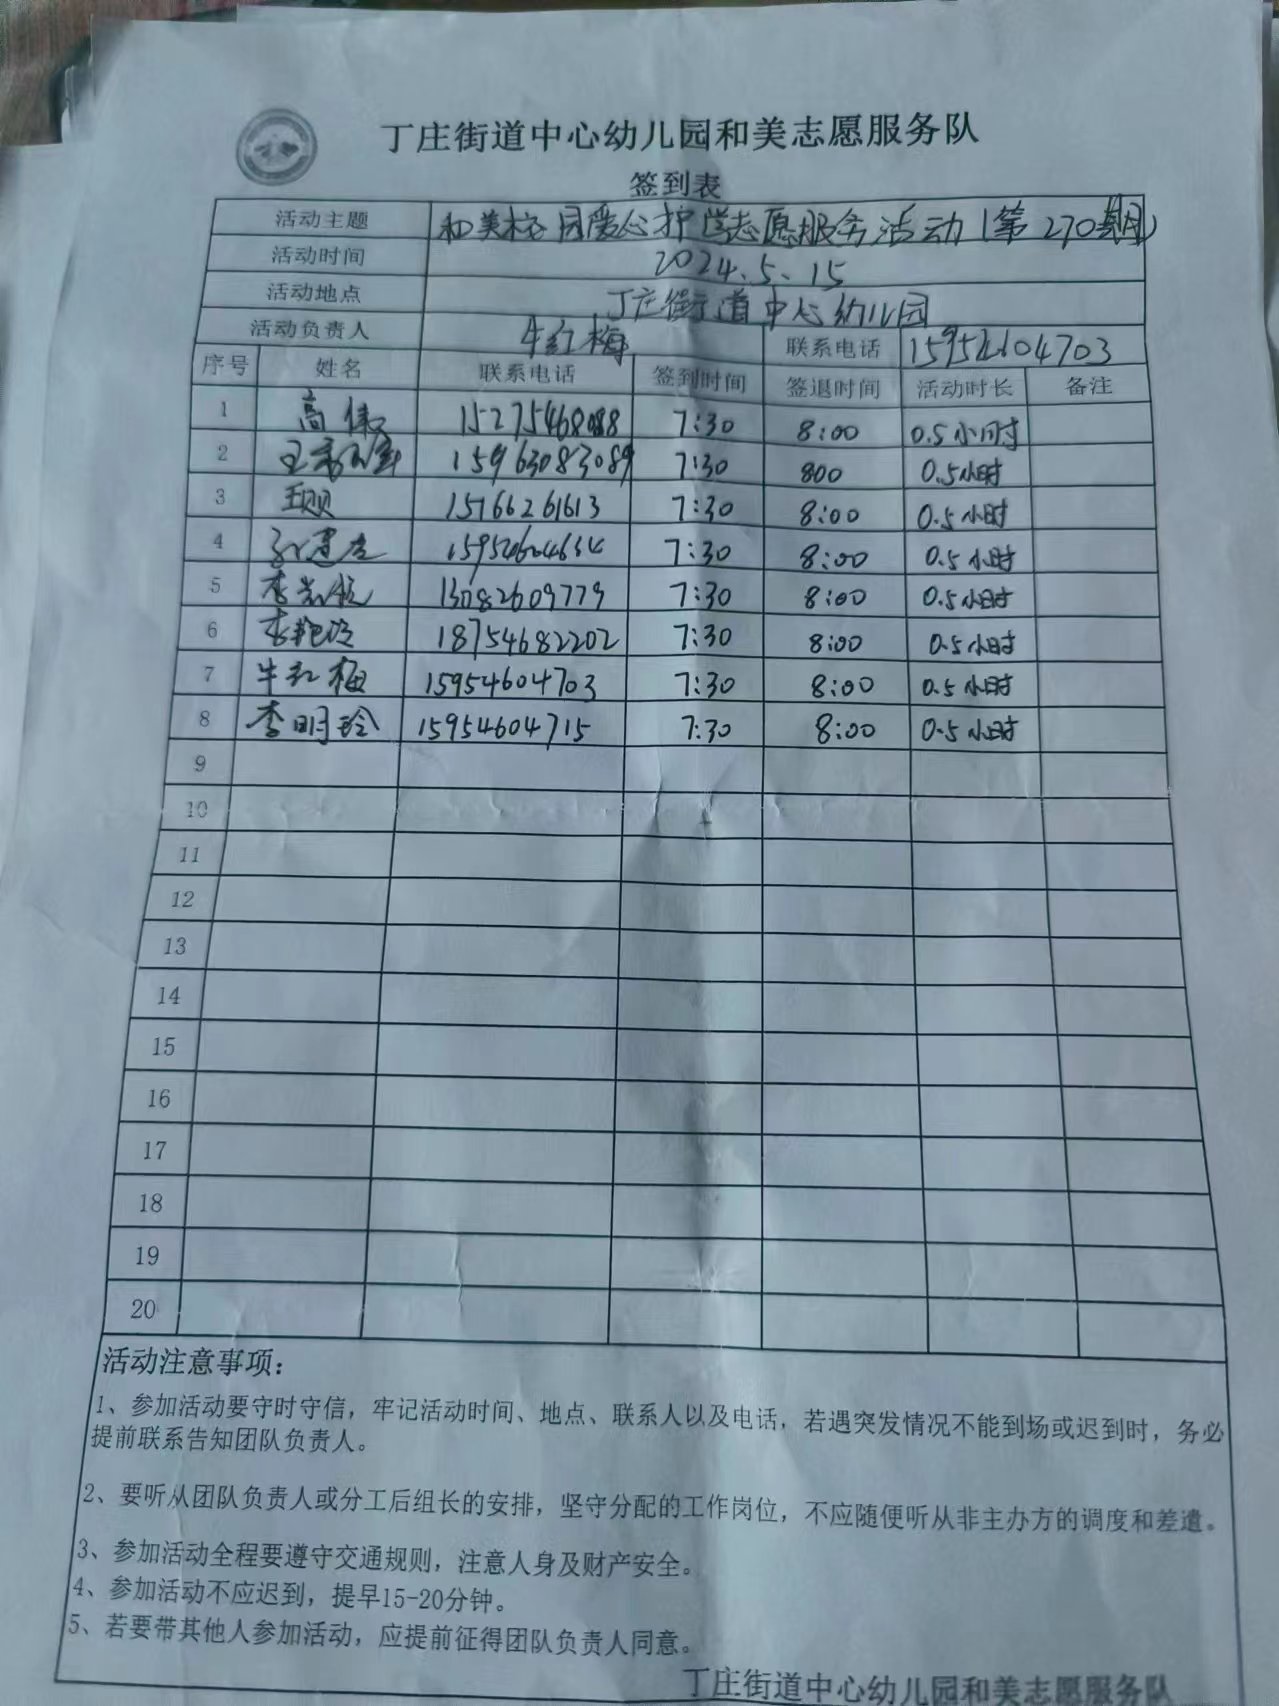 丁庄街道中心幼儿园和美志愿服务队
签到表
活动主题 和美校园爱心护学志愿服务活动(第270期)
活动时间 2024.5.15
活动地点 丁庄街道中心幼儿园
活动负责人 牛红梅 联系电话 15954604703
序号 姓名 联系电话 签到时间 签退时间 活动时长 备注
1 高 15275468088 7:30 8:00 0.5小时
2 王 15963083089 7:30 800 0.5小时
3 15766261613 7:30 8:00 0.5小时
4 7:30 8:00 0.5小时
5 李 13082609779 7:30 8:00 0.5小时
6 李艳玲 18754682202 7:30 8:00 0.5小时
7 牛红梅 15954604703 7:30 8:00 0.5小时
8 李明玲 15954604715 7:30 8:00 0.5小时
9
10
11
12
13
14
15
16
17
18
19
20
活动注意事项:
1、参加活动要守时守信，牢记活动时间、地点、联系人以及电话，若遇突发情况不能到场或迟到时，务必
提前联系告知团队负责人。
2、要听从团队负责人或分工后组长的安排，坚守分配的工作岗位，不应随便听从非主办方的调度和差遣。
3、参加活动全程要遵守交通规则，注意人身及财产安全。
4、参加活动不应迟到，提早15-20分钟。
5、若要带其他人参加活动，应提前征得团队负责人同意。
丁庄街道中心幼儿园和美志愿服务队